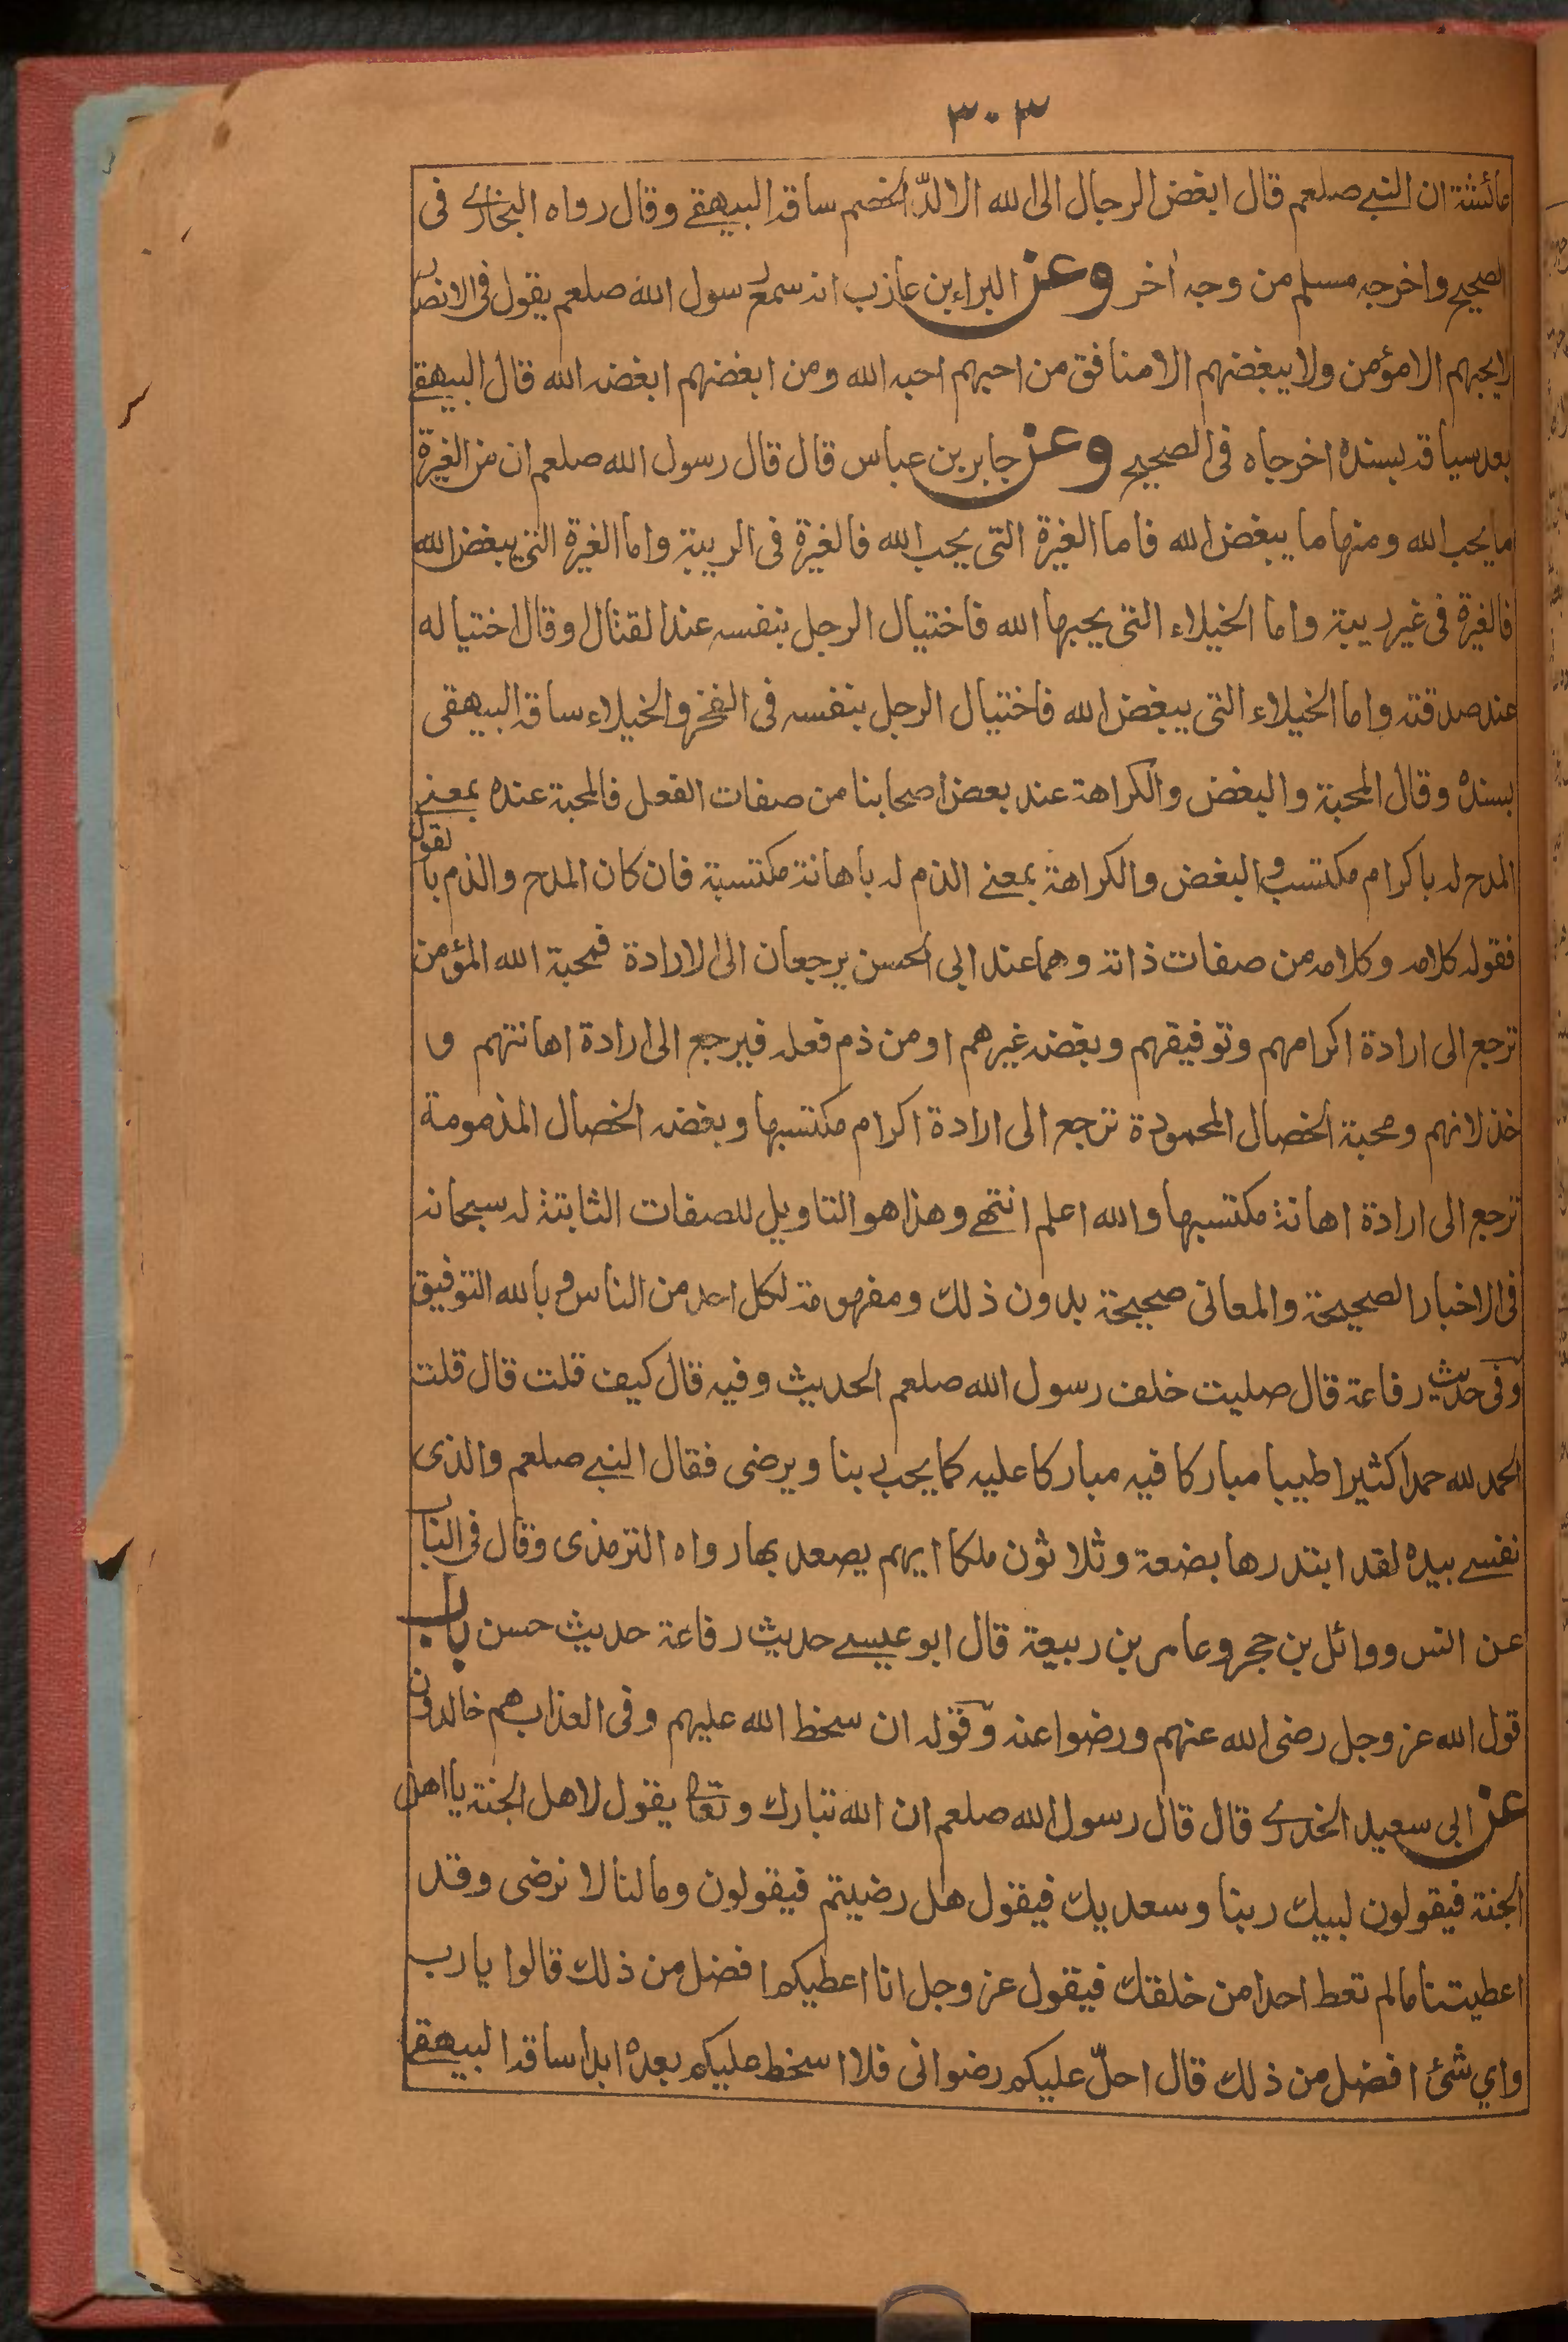 ٣٠٣
عائشة ان النبي صلعم قال ابغض الرجال الى الله الالدّ الخصم ساقه البيهقي وقال رواه البخاري فى
الصحيح واخرجه مسلم من وجه أخر وعن البراء بن عازب انه سمع رسول الله صلعم يقول فى الانصار
لايحبهم الا مؤمن ولا يبغضهم الا منافق من احبهم احبه الله ومن ابغضهم ابغضه الله قال البيهقي
بعد سياقه بسنده اخرجاه فى الصحيح وعن جابر بن عباس قال قال رسول الله صلعم ان من الغيرة
ما يحب الله ومنها ما يبغض الله فاما الغيرة التى يحب الله فالغيرة فى الريبة واما الغيرة التى يبغض الله
فالغيرة فى غير ريبة واما الخيلاء التى يحبها الله فاختيال الرجل بنفسه عند القتال وقال اختياله
عند صدقته واما الخيلاء التى يبغض الله فاختيال الرجل بنفسه فى الفخر والخيلاء ساقه البيهقى
بسنده وقال المحبة والبغض والكراهة عند بعض اصحابنا من صفات الفعل فالمحبة عنده بمعنى
المدح له باكرام مكتسب والبغض والكراهة بمعنى الذم له باهانة مكتسبة فان كان المدح والذم بالقول
فقوله كلامه وكلامه من صفات ذاته وهما عند ابى الحسن يرجعان الى الارادة فمحبة الله المؤمن
ترجع الى ارادة اكرامهم وتوفيقهم وبغضه غيرهم او من ذم فعله فيرجع الى ارادة اهانتهم و
خذلانهم ومحبة الخصال المحمودة ترجع الى ارادة اكرام مكتسبها وبغضه الخصال المذمومة
ترجع الى ارادة اهانة مكتسبها والله اعلم انتهى وهذا هو التاويل للصفات الثابتة له سبحانه
فى الاخبار الصحيحة والمعانى صحيحة بدون ذلك ومفهومة لكل احد من الناس وبالله التوفيق
وفى حديث رفاعة قال صليت خلف رسول الله صلعم الحديث وفيه قال كيف قلت قال قلت
الحمد لله حمدا كثيرا طيبا مباركا فيه مباركا عليه كما يحب ربنا ويرضى فقال النبي صلعم والذى
نفسي بيده لقد ابتدرها بضعة وثلاثون ملكا ايهم يصعد بها رواه الترمذى وقال فى الباب
عن انس ووائل بن حجر وعامر بن ربيعة قال ابو عيسى حديث رفاعة حديث حسن باب
قول الله عز وجل رضى الله عنهم ورضوا عنه وقوله ان سخط الله عليهم وفى العذاب هم خالدون
عن ابى سعيد الخدري قال قال رسول الله صلعم ان الله تبارك وتعالى يقول لاهل الجنة يا اهل
الجنة فيقولون لبيك ربنا وسعديك فيقول هل رضيتم فيقولون وما لنا لا نرضى وقد
اعطيتنا مالم تعط احدا من خلقك فيقول عز وجل انا اعطيكم افضل من ذلك قالوا يا رب
واي شئ افضل من ذلك قال احلّ عليكم رضوانى فلا اسخط عليكم بعده ابدا ساقه البيهقي